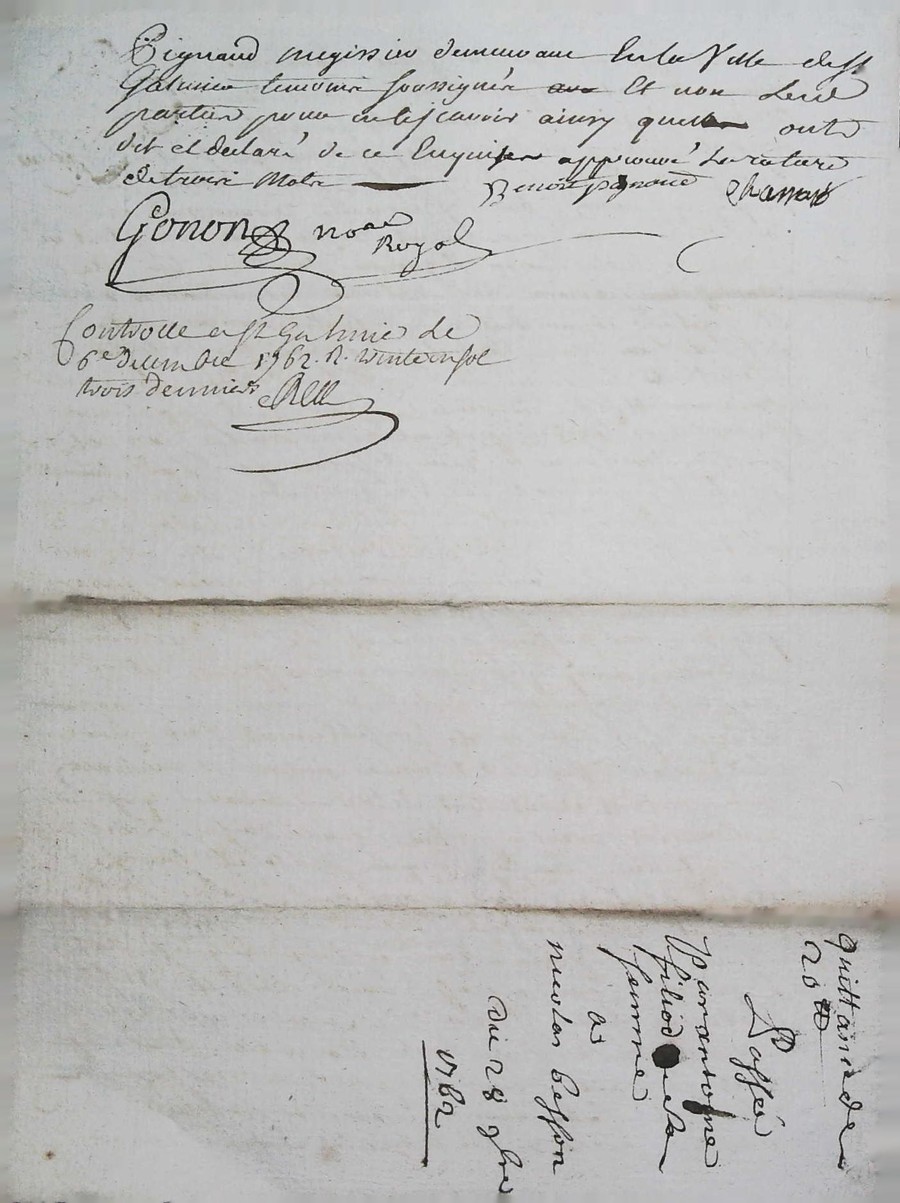 Pignaud megissier demeurant En la Ville de st
Galmier temoins soussignés Et non Lesd
parties pour ne le scavoir ainsy quelles onts
dit et declaré de ce Enquises approuvé La rature
de trois Mots Benoit pignaud
Gonon no.re Royal
Controllé a st Galmier Le
6e decembre 1762. R. vint un sol
trois denniers
quittance de
20
passée
par antoine
filiod et sa
femme
a
nicolas besson
du 28 9bre
1762